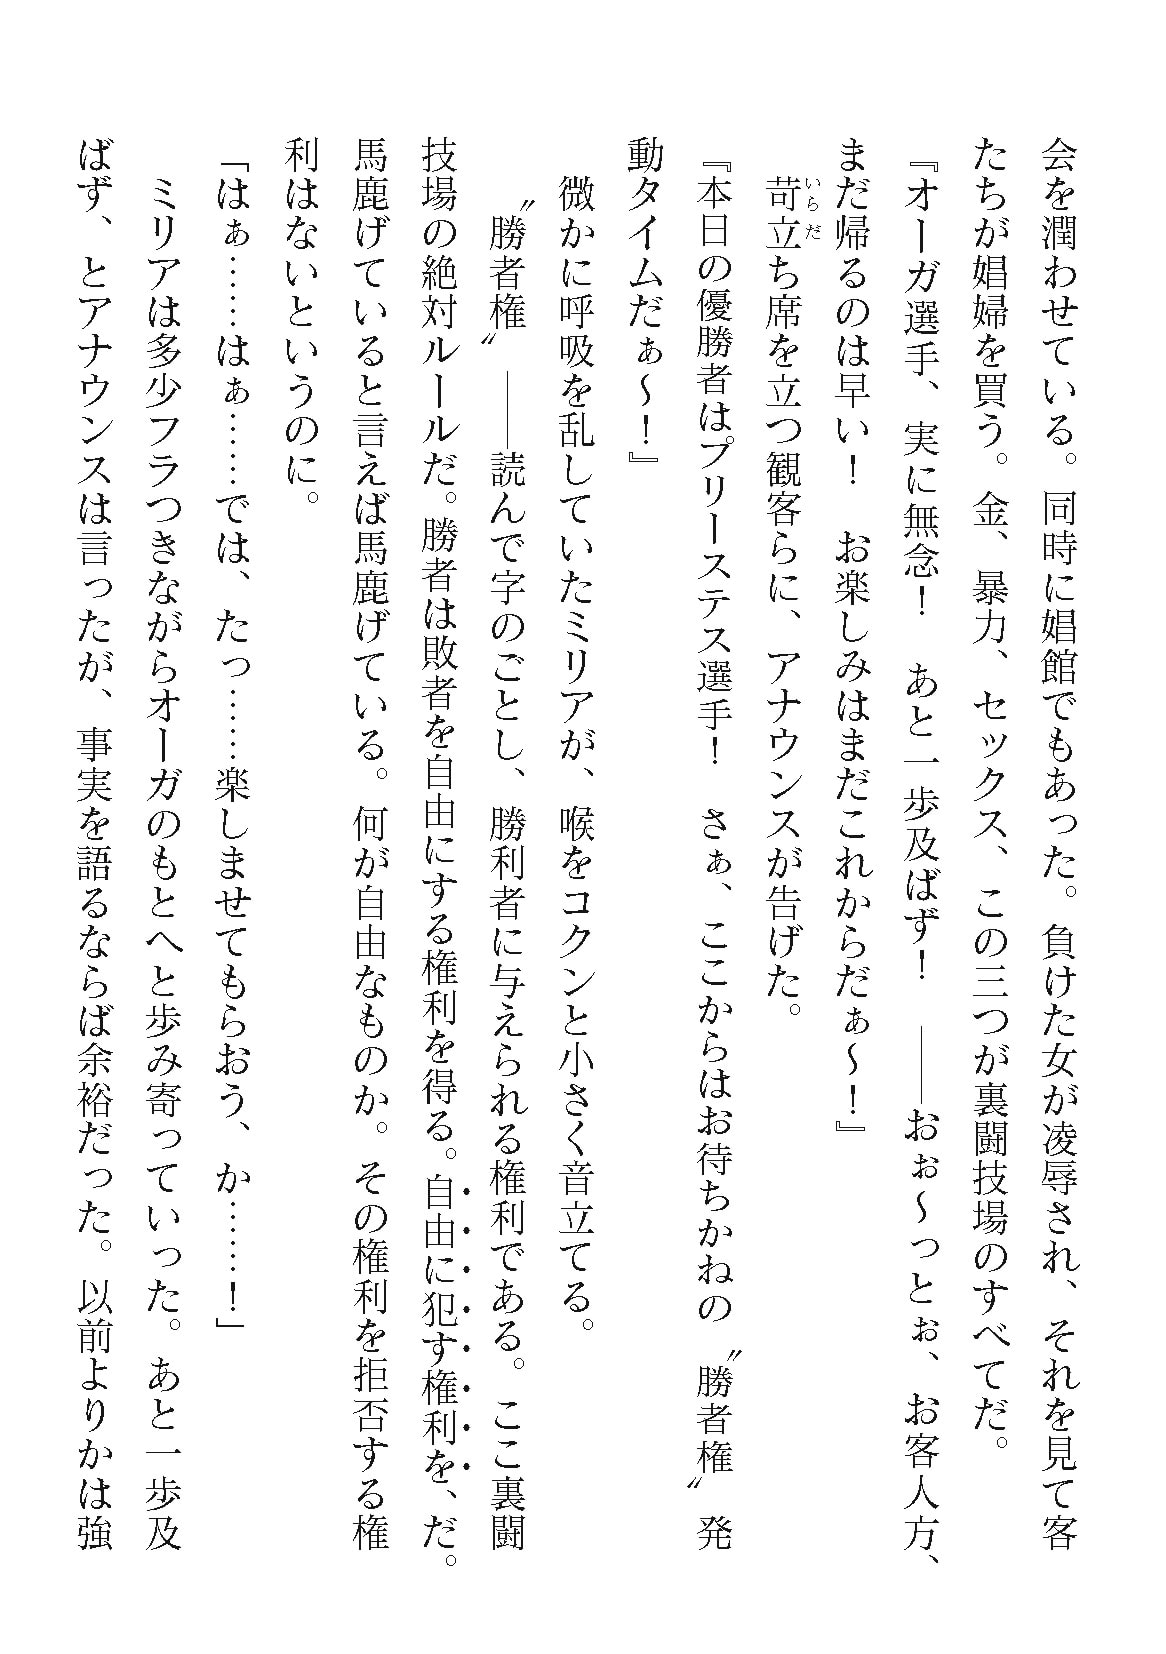 会を潤わせている。同時に娼館でもあった。負けた女が凌辱され、それを見て客
たちが娼婦を買う。金、暴力、セックス、この三つが裏闘技場のすべてだ。
『オーガ選手、実に無念！　あと一歩及ばず！　――おぉ～っとぉ、お客人方、
まだ帰るのは早い！　お楽しみはまだこれからだぁ～！』
苛立ち席を立つ観客らに、アナウンスが告げた。
いらだ
『本日の優勝者はプリーステス選手！　さぁ、ここからはお待ちかねの〝勝者権〟発
動タイムだぁ～！』
微かに呼吸を乱していたミリアが、喉をコクンと小さく音立てる。
〝勝者権〟――読んで字のごとし、勝利者に与えられる権利である。ここ裏闘
技場の絶対ルールだ。勝者は敗者を自由にする権利を得る。自由に犯す権利を、だ。
馬鹿げていると言えば馬鹿げている。何が自由なものか。その権利を拒否する権
利はないというのに。
「はぁ……はぁ……では、たっ……楽しませてもらおう、か……！」
ミリアは多少フラつきながらオーガのもとへと歩み寄っていった。あと一歩及
ばず、とアナウンスは言ったが、事実を語るならば余裕だった。以前よりかは強